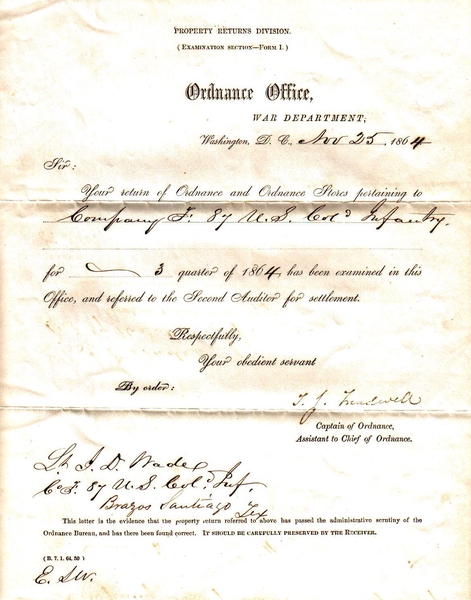 PROPERTY RETURNS DIVISION.
(EXAMINATION SECTION—FORM 1.)
Ordnance Office,
WAR DEPARTMENT,
Washington, D. C., Nov 25, 1864
Sir:
Your return of Ordnance and Ordnance Stores pertaining to
Company F. 87 U.S. Cold Infantry.
for 3 quarter of 1864, has been examined in this
Office, and referred to the Second Auditor for settlement.
Respectfully,
Your obedient servant
By order:
T. J. Treadwell
Captain of Ordnance,
Assistant to Chief of Ordnance.
Lt. J. D. Wade
Co F. 87 U.S. Cold Inf.
Brazos Santiago Tex
This letter is the evidence that the property return referred to above has passed the administrative scrutiny of the
Ordnance Bureau, and has there been found correct. IT SHOULD BE CAREFULLY PRESERVED BY THE RECEIVER.
(B. 7. 1. 64. 50)